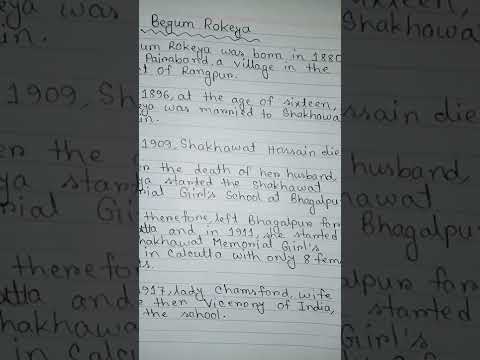 Begum Rokeya
um Rokeya was born in 1880
Pairabond, a village in the
t of Rangpur.
1896, at the age of sixteen,
eya was married to Shakhawa
in.
1909, Shakhawat Hossain die
en the death of her husband,
ya started the Shakhawat
rial Girl's School at Bhagalpu
therefore, left Bhagalpur for
utta and in 1911, she started
hakhawat Memorial Girl's
in Calcutta with only 8 fem
es.
917, lady Chamsford, wife
e then Vicerony of India,
the school.